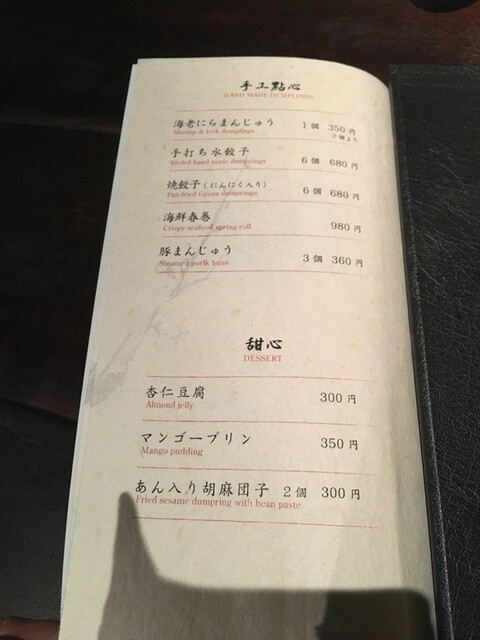 手工點心
HAND MADE DUMPLINGS
海老にらまんじゅう 1個 350円
Shrimp & leek dumplings 2個より
手打ち水餃子 6個 680円
Boiled hand made dumprings
焼餃子(にんにく入り) 6個 680円
Pan-fried Gyoza dumprings
海鮮春巻 980円
Crispy seafood spring roll
豚まんじゅう 3個 360円
Steamed porlk buns
甜心
DESSERT
杏仁豆腐 300円
Almond jelly
マンゴープリン 350円
Mango pudding
あん入り胡麻団子 2個 300円
Fried sesame dumpring with bean paste